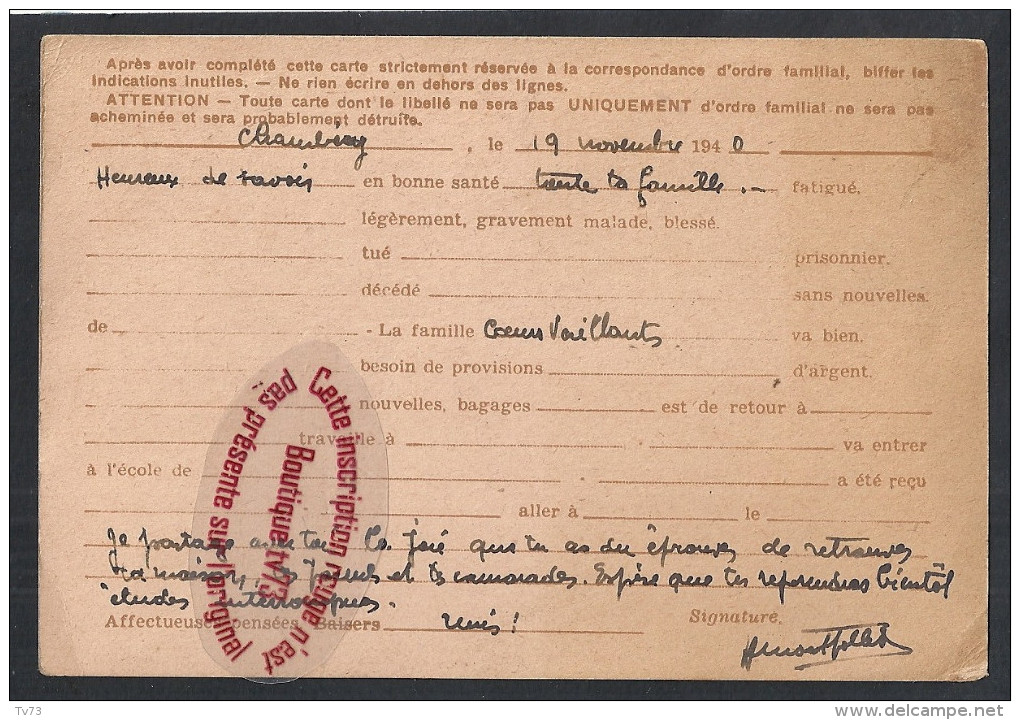 Après avoir complété cette carte strictement réservée à la correspondance d'ordre familial, biffer les
indications inutiles. — Ne rien écrire en dehors des lignes.
ATTENTION — Toute carte dont le libellé ne sera pas UNIQUEMENT d'ordre familial ne sera pas
acheminée et sera probablement détruite.
Chambéry , le 19 novembre 1940
Heureux de savoir en bonne santé toute ta famille . — fatigué.
légèrement, gravement malade, blessé.
tué prisonnier.
décédé sans nouvelles.
de - La famille Coeurs Vaillants va bien.
besoin de provisions d'argent.
nouvelles, bagages est de retour à
travaille à va entrer
à l'école de a été reçu
aller à le
Je partage avec toi la joie que tu as du éprouver de retrouver
ta maison, et tes camarades. Espère que tu reprendras bientôt
études interrompues.
Affectueuses pensées. Baisers Signature.
Cette inscription rouge n'est
pas présente sur l'original
Boutique tv73
Tv73
www.delcampe.net